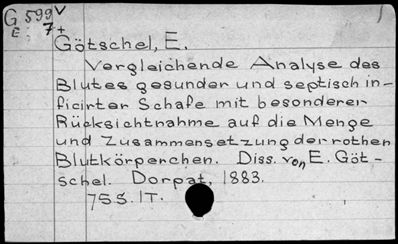 G 599V
E. 7+
Götschel, E.
Vergleichende Analyse des
Blutes gesunder und septisch in-
ficirter Schafe mit besonderer
Rücksichtnahme auf die Menge
und Zusammensetzung der rothen
Blutkörperchen. Diss. von E. Göt-
schel. Dorpat, 1883.
75 S. 1T.